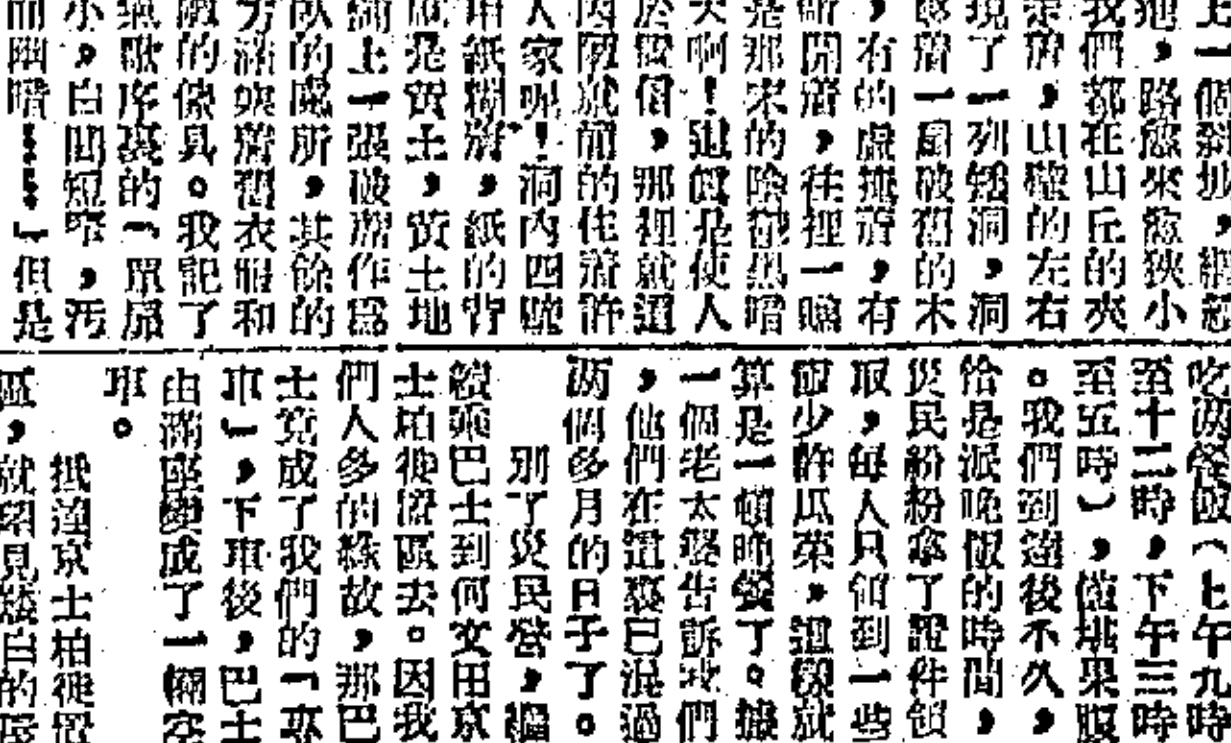 上一個斜坡，繼續
池，路愈來愈狹小
我們都在山丘的夾
，山壁的左右
現了一列矮洞，洞
着一扇破舊的木
，有的虛掩着，有
開着，往裡一瞧
是那末的陰暗
天啊！這就是使人
信，那裡就這
因陋就簡的住着許
人家呢！洞內四壁
用紙糊着，紙的背
底是黃土，黃土地
鋪上一張破蓆作為
臥的處所，其餘的
方滿堆着舊衣服和
的傢具。我記了
歌序裏的「單扉
小，白間短窄，污
而幽暗……」但是
吃兩餐飯（上午九時
至十二時，下午三時
至五時），做填果腹
。我們到達後不久，
恰是派晚飯的時間，
災民紛紛拿了證件領
取，每人只領到一些
飯少許瓜菜，這樣就
算是一頓晚餐了。據
一個老太婆告訴我們
，他們在這裏已混過
兩個多月的日子了。
別了災民營，繼
續乘巴士到何文田京
士柏徙置區去。因我
們人多的緣故，那巴
士竟成了我們的「專
車」，下車後，巴士
由滿座變成了一輛空
車。
抵達京士柏徙置
區，就瞧見矮白的房